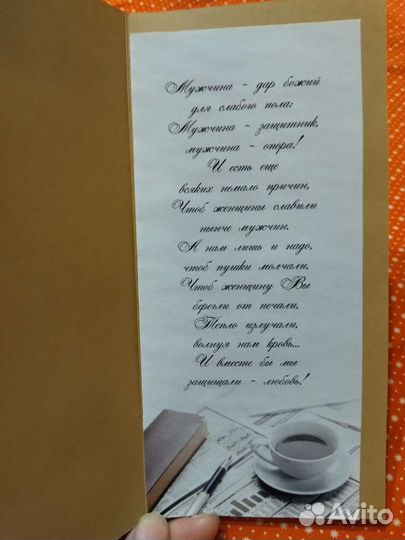 Мужчина ~ дар божий
для слабого пола:
Мужчина ~ защитник,
мужчина ~ опора!
И есть еще
всяких немало причин,
Чтоб женщины славили
нынче мужчин.
А нам лишь и надо,
чтоб пушки молчали,
Чтоб женщину Вы
берегли от печали,
Тепло излучали,
волнуя нам кровь...
И вместе бы мы
защищали ~ любовь!
Avito